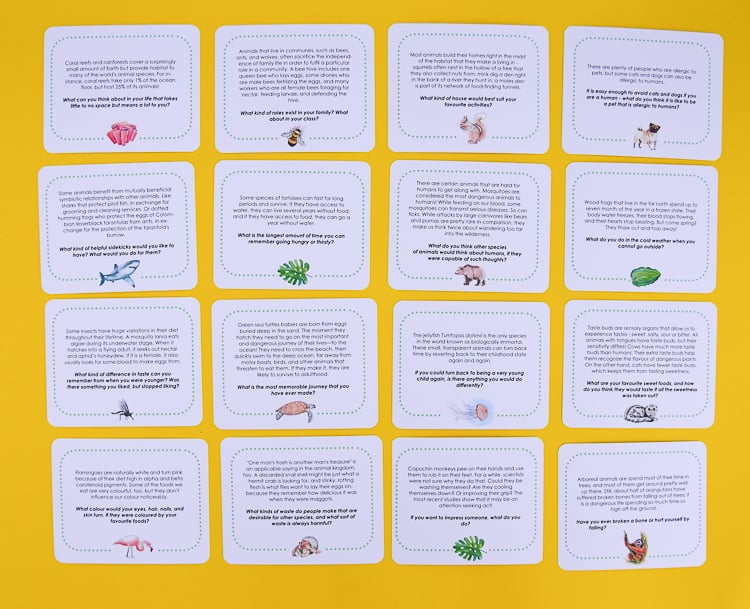 Coral reefs and rainforests cover a surprisingly
small amount of Earth but provide habitat to
many of the world's animal species. For in-
stance, coral reefs take only 1% of the ocean
floor, but host 25% of its animals!
What can you think about in your life that takes
little to no space but means a lot to you?
Animals that live in communes, such as bees,
ants, and wolves, often sacrifice the independ-
ence of family life in order to fulfil a particular
role in a community. A bee hive includes one
queen bee who lays eggs, some drones who
are male bees fertilizing the eggs, and many
workers who are all female bees foraging for
nectar, feeding larvae, and defending the
hive.
What kind of roles exist in your family? What
about in your class?
Most animals build their homes right in the midst
of the habitat that they make a living in -
squirrels often nest in the hollow of a tree that
they also collect nuts from; mink dig a den right
in the bank of a river they hunt in, a moles den
is part of its network of food-finding tunnels.
What kind of house would best suit your
favourite activities?
There are plenty of people who are allergic to
pets, but some cats and dogs can also be
allergic to humans.
It is easy enough to avoid cats and dogs if you
are a human - what do you think it is like to be
a pet that is allergic to humans?
Some animals benefit from mutually beneficial
symbiotic relationships with other animals. Like
sharks that protect pilot fish, in exchange for
grooming and cleaning services. Or dotted
humming frogs who protect the eggs of Colom-
bian lesserblack tarantulas from ants, in ex-
change for the protection of the tarantula's
burrow.
What kind of helpful sidekicks would you like to
have? What would you do for them?
Some species of tortoises can fast for long
periods and survive. If they have access to
water, they can live several years without food,
and if they have access to food, they can go a
year without water.
What is the longest amount of time you can
remember going hungry or thirsty?
There are certain animals that are hard for
humans to get along with. Mosquitoes are
considered the most dangerous animals to
humans! While feeding on our blood, some
mosquitoes can transmit serious diseases. So can
ticks. While attacks by large carnivores like bears
and pumas are pretty rare in comparison, they
make us think twice about wandering too far
into the wilderness.
What do you think other species
of animals would think about humans, if they
were capable of such thoughts?
Wood frogs that live in the far north spend up to
seven months of the year in a frozen state. Their
body water freezes, their blood stops flowing,
and their hearts stop beating. But come spring?
They thaw out and hop away!
What do you do in the cold weather when you
cannot go outside?
Some insects have huge variations in their diet
throughout their lifetime. A mosquito larva eats
algae during its underwater stage. When it
hatches into a flying adult, it seeks out nectar
and aphid's honeydew. If it is a female, it also
usually looks for some blood to make eggs from.
What kind of difference in taste can you
remember from when you were younger? Was
there something you liked, but stopped liking?
Green sea turtles babies are born from eggs
buried deep in the sand. The moment they
hatch they need to go on the most important
and dangerous journey of their lives—to the
ocean! They need to cross the beach, then
quickly swim to the deep ocean, far away from
motor boats, birds, and other animals that
threaten to eat them. If they make it, they are
likely to survive to adulthood.
What is the most memorable journey that you
have ever made?
The jellyfish Turritopsis dohrnii is the only species
in the world known as biologically immortal.
These small, transparent animals can turn back
time by reverting back to their childhood state
again and again.
If you could turn back to being a very young
child again, is there anything you would do
differently?
Taste buds are sensory organs that allow us to
experience tastes - sweet, salty, sour or bitter. All
animals with tongues have taste buds, but their
sensitivity differs! Cows have much more taste
buds than humans. Their extra taste buds help
them recognize the flavour of dangerous plants.
On the other hand, cats have fewer taste buds,
which keeps them from tasting sweetness.
What are your favourite sweet foods, and how
do you think they would taste if all the sweetness
was taken out?
Flamingoes are naturally white and turn pink
because of their diet high in alpha and beta
carotenoid pigments. Some of the foods we
eat are very colourful, too, but they don't
influence our colour noticeably.
What colour would your eyes, hair, nails, and
skin turn, if they were coloured by your
favourite foods?
"One man's trash is another man's treasure" is
an applicable saying in the animal kingdom,
too. A discarded snail shell might be just what a
hermit crab is looking for, and stinky, rotting
flesh is what flies want to lay their eggs on,
because they remember how delicious it was
when they were maggots.
What kinds of waste do people make that are
desirable for other species, and what sort of
waste is always harmful?
Capuchin monkeys pee on their hands and use
them to rub it on their feet. For a while, scientists
were not sure why they do that. Could they be
washing themselves? Are they cooling
themselves down? Or improving their grip? The
most recent studies show that it may be an
attention-seeking act!
If you want to impress someone, what do you
do?
Arboreal animals are spend most of their time in
trees, and most of them get around pretty well
up there. Still, about half of orangutans have
suffered broken bones from falling out of trees: it
is a dangerous life spending so much time so
high off the ground.
Have you ever broken a bone or hurt yourself by
falling?